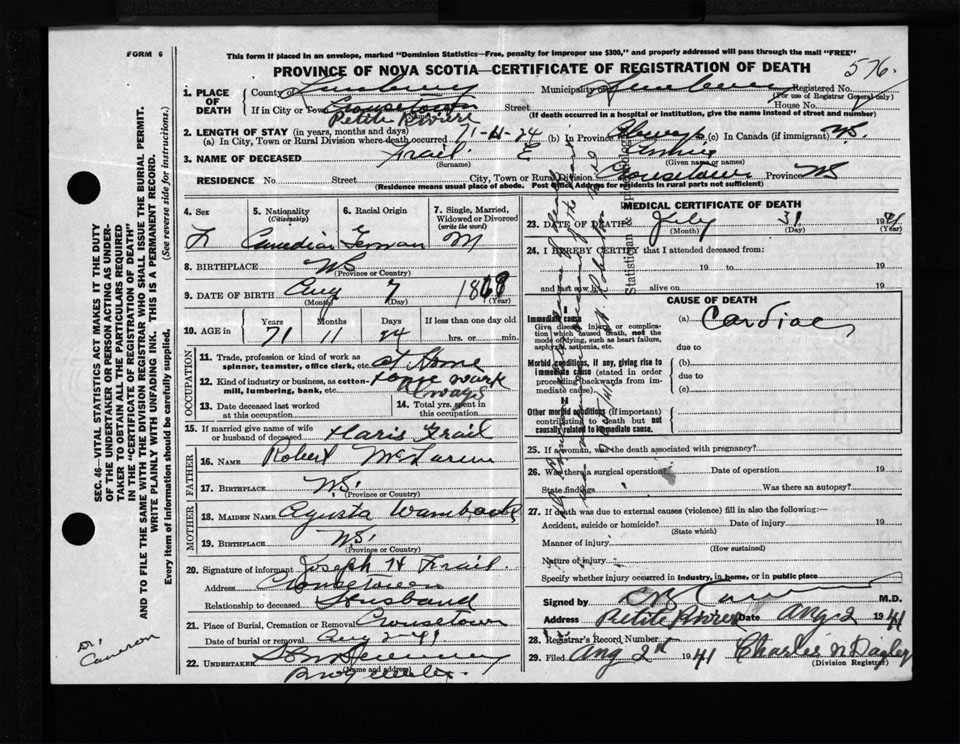 FORM 6
This form if placed in an envelope, marked "Dominion Statistics—Free, penalty for improper use $300," and properly addressed will pass through the mail "FREE"
PROVINCE OF NOVA SCOTIA—CERTIFICATE OF REGISTRATION OF DEATH
576
1. PLACE OF DEATH
County of Lunenburg Municipality of Lunenburg Registered No.
(For use of Registrar General only)
If in City or Town Crousetown Street House No.
Petite Riviere (If death occurred in a hospital or institution, give the name instead of street and number)
2. LENGTH OF STAY (in years, months and days)
(a) In City, Town or Rural Division where death occurred 71-11-24 (b) In Province Always (c) In Canada (if immigrant) N.S.
3. NAME OF DECEASED Frail E
(Surname) (Given name or names)
RESIDENCE No Street City, Town or Rural Division Crousetown Province NS
(Residence means usual place of abode. Post Office Address for residents in rural parts not sufficient)
4. Sex
F
5. Nationality (Citizenship)
Canadian
6. Racial Origin
German
7. Single, Married, Widowed or Divorced (write the word)
M
8. BIRTHPLACE NS
(Province or Country)
9. DATE OF BIRTH Aug 7 18
(Month) (Day) (Year)
10. AGE in
Years Months Days If less than one day old
71 11 24 hrs. or min.
OCCUPATION
11. Trade, profession or kind of work as spinner, teamster, office clerk, etc. at Home
12. Kind of industry or business, as cotton-mill, lumbering, bank, etc.
13. Date deceased last worked at this occupation
14. Total yrs. spent in this occupation
15. If married give name of wife or husband of deceased Haris Frail
FATHER
16. NAME Robert McLaren
17. BIRTHPLACE N.S.
(Province or Country)
MOTHER
18. MAIDEN NAME Agusta Wambach
19. BIRTHPLACE N.S.
(Province or Country)
20. Signature of informant Joseph H Frail
Address
Relationship to deceased Husband
21. Place of Burial, Cremation or Removal Crousetown
Date of burial or removal Aug 2-41
22. UNDERTAKER
(Name and address)
MEDICAL CERTIFICATE OF DEATH
23. DATE OF DEATH July 31 1941
(Month) (Day) (Year)
24. I HEREBY CERTIFY that I attended deceased from:
19 to 19
and last saw h alive on 19
CAUSE OF DEATH
Immediate cause
Give disease, injury or complication which caused death, not the mode of dying, such as heart failure, asphyxia, asthenia, etc.
(a) Cardiac
due to
Morbid conditions, if any, giving rise to immediate cause (stated in order proceeding backwards from immediate cause).
(b)
due to
(c)
Other morbid conditions (if important) contributing to death but not causally related to immediate cause.
25. If a woman, was the death associated with pregnancy?
26. Was there a surgical operation? Date of operation 19
State findings Was there an autopsy?
27. If death was due to external causes (violence) fill in also the following:—
Accident, suicide or homicide? Date of injury 19
(State which)
Manner of injury
(How sustained)
Nature of injury
Specify whether injury occurred in industry, in home, or in public place
Signed by M.D.
Address Petite Riviere Date Aug 2 1941
28. Registrar's Record Number
29. Filed Aug 2nd 1941 Charles N Dagley
(Division Registrar)
SEC. 46—VITAL STATISTICS ACT MAKES IT THE DUTY
OF THE UNDERTAKER OR PERSON ACTING AS UNDER-
TAKER TO OBTAIN ALL THE PARTICULARS REQUIRED
IN THE "CERTIFICATE OF REGISTRATION OF DEATH"
AND TO FILE THE SAME WITH THE DIVISION REGISTRAR WHO SHALL ISSUE THE BURIAL PERMIT.
WRITE PLAINLY WITH UNFADING INK. THIS IS A PERMANENT RECORD.
Every item of Information should be carefully supplied. (See reverse side for instructions.)
Dr. Cameron